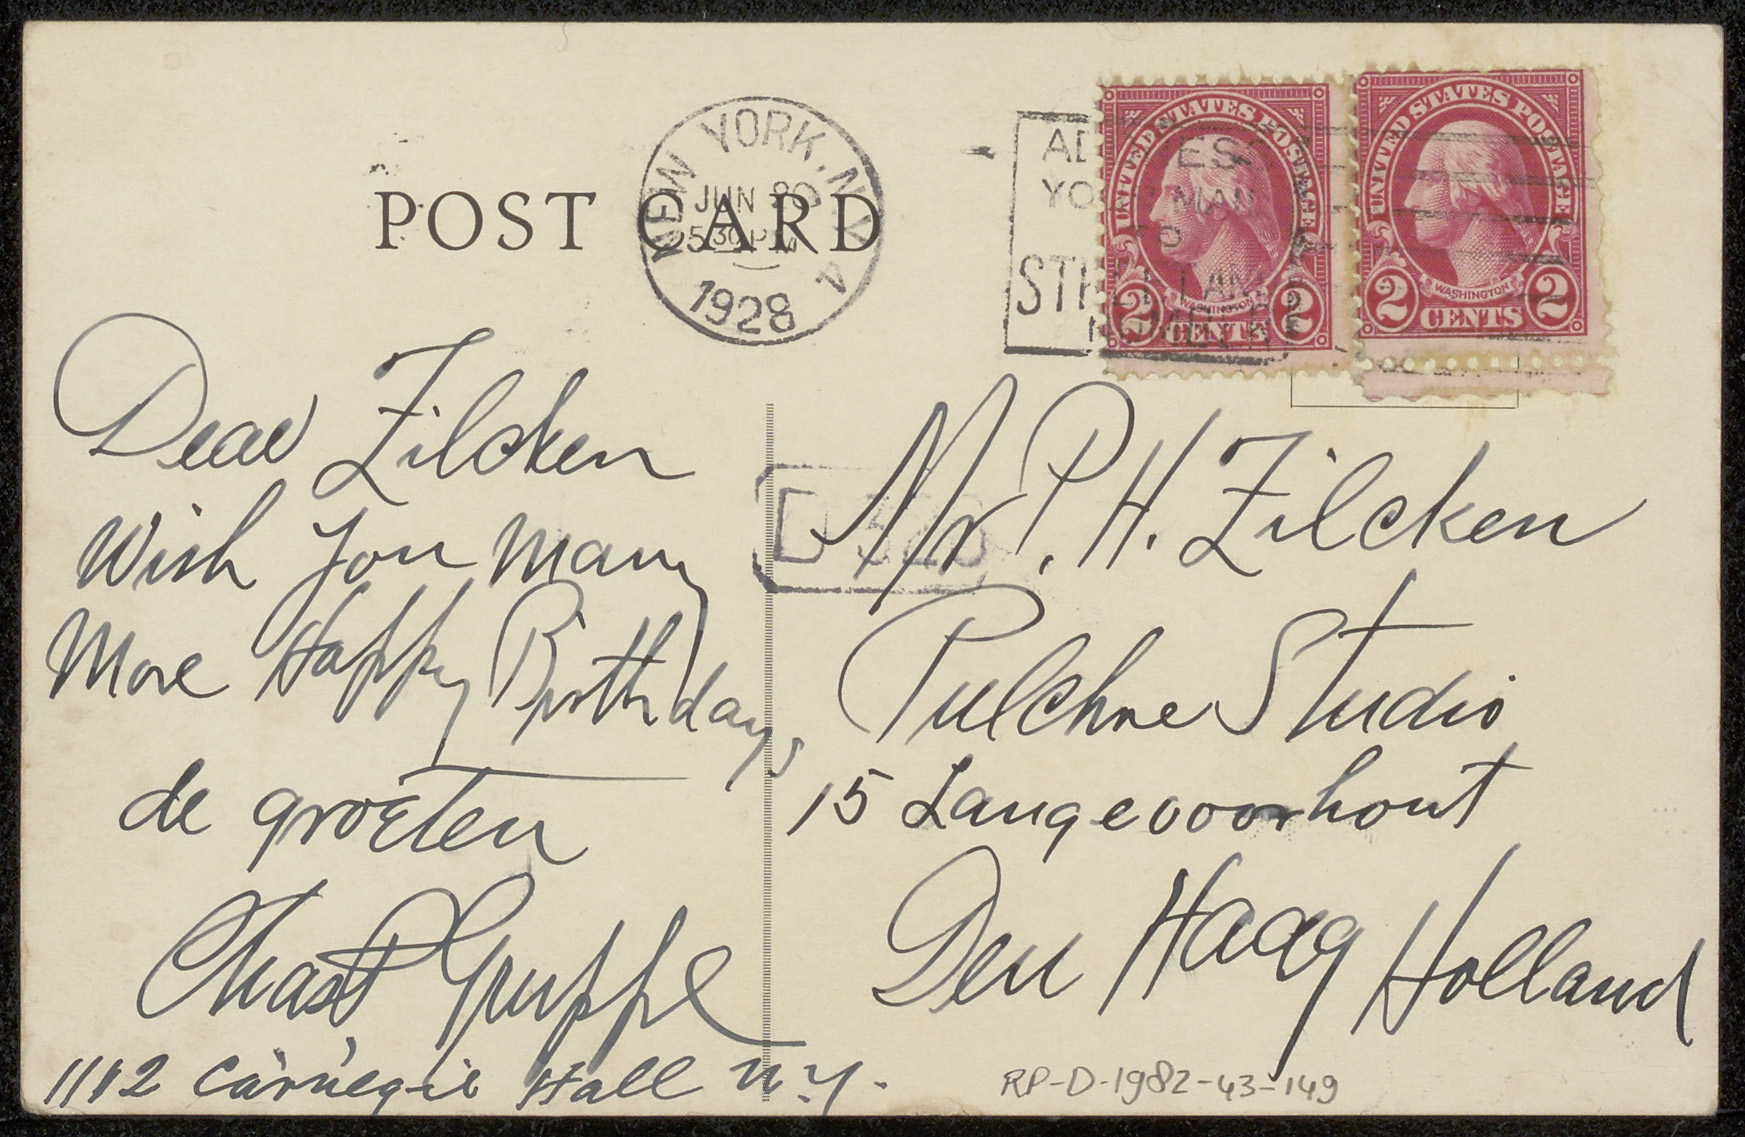 POST CARD
NEW YORK, N.Y.
JUN
5 30 PM
1928
UNITED STATES POSTAGE
WASHINGTON
2 CENTS 2
UNITED STATES POSTAGE
WASHINGTON
2 CENTS 2
Dear Zilcken
Wish you many
More Happy Birthdays
de groeten
Chas P Gruppe
1102 Carnegie Hall N.Y.
Mr P. H. Zilcken
Pulchre Studio
15 Langevoorhout
Den Haag Holland
RP-D-1982-43-149